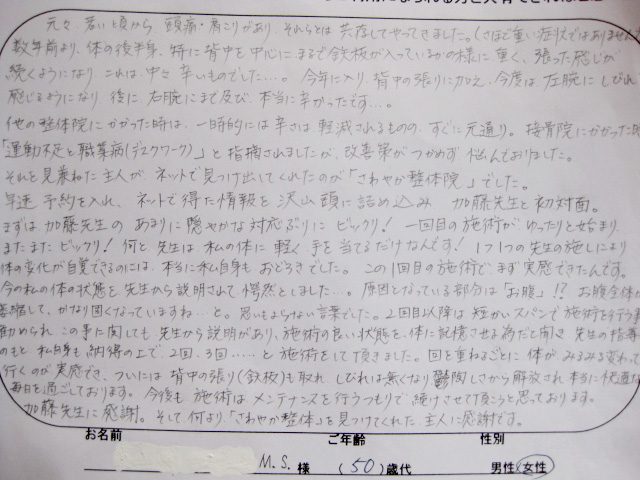 元々、若い頃から、頭痛・肩こりがあり、それらとは共存してやってきました。(さほど重い症状ではありませんが
数年前より、体の後半身、特に背中を中心にまるで鉄板が入っているかの様に重く、張った感じが
続くようになり、これは中々辛いものでした…。今年に入り、背中の張りに加え、今度は左腕にしびれ
感じるようになり、後に右腕にまで及び、本当に辛かったです…。
他の整体院にかかった時は、一時的には辛さは軽減されるものの、すぐに元通り。接骨院にかかった時
「運動不足と職業病(デスクワーク)」と指摘されましたが、改善策がつかめず悩んでおりました。
それを見兼ねた主人が、ネットで見つけ出してくれたのが「さわやか整体院」でした。
早速予約を入れ、ネットで得た情報を沢山頭に詰め込み 加藤先生と初対面。
まずは加藤先生のあまりに穏やかな対応ぶりにビックリ!一回目の施術がゆったりと始まり、
またまたビックリ!何と、先生は、私の体に軽く手を当てるだけなんです!1つ1つの先生の施しにより
体の変化が自覚できるのには、本当に私自身もおどろきでした。この1回目の施術で、まず実感できたんです。
今の私の体の状態を先生から説明されて愕然としました…。原因となっている部分は「お腹」!?お腹全体が
萎縮して、かなり固くなっていますね…と。思いもよらない言葉でした。2回目以降は短かいスパンで施術を行う事
勧められ、この事に関しても先生から説明があり、施術の良い状態を、体に記憶させる為だと聞き、先生の指導
のもと私自身も納得の上で、2回、3回……と施術をして頂きました。回を重ねるごとに体がみるみる変わって
行くのが実感でき、ついには背中の張り(鉄板)も取れ、しびれは無くなり鬱陶しさから解放され本当に快適な
毎日を過ごしております。今後も、施術はメンテナンスを行うつもりで続けさせて頂こうと思っております。
加藤先生に感謝。そして何より、「さわやか整体」を見つけてくれた主人に感謝です。
お名前 ご年齢 性別
M.S. 様 (50)歳代 男性・女性